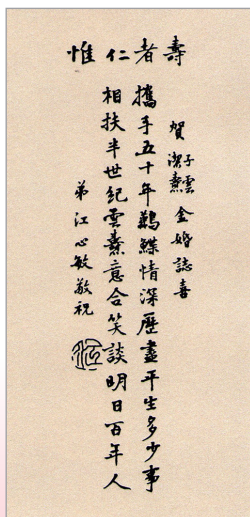 惟仁者壽
賀子雲潔燾金婚誌喜
攜手五十年鶼鰈情深歷盡平生多少事
相扶半世紀雲燾意合笑談明日百年人
弟江心敏敬祝